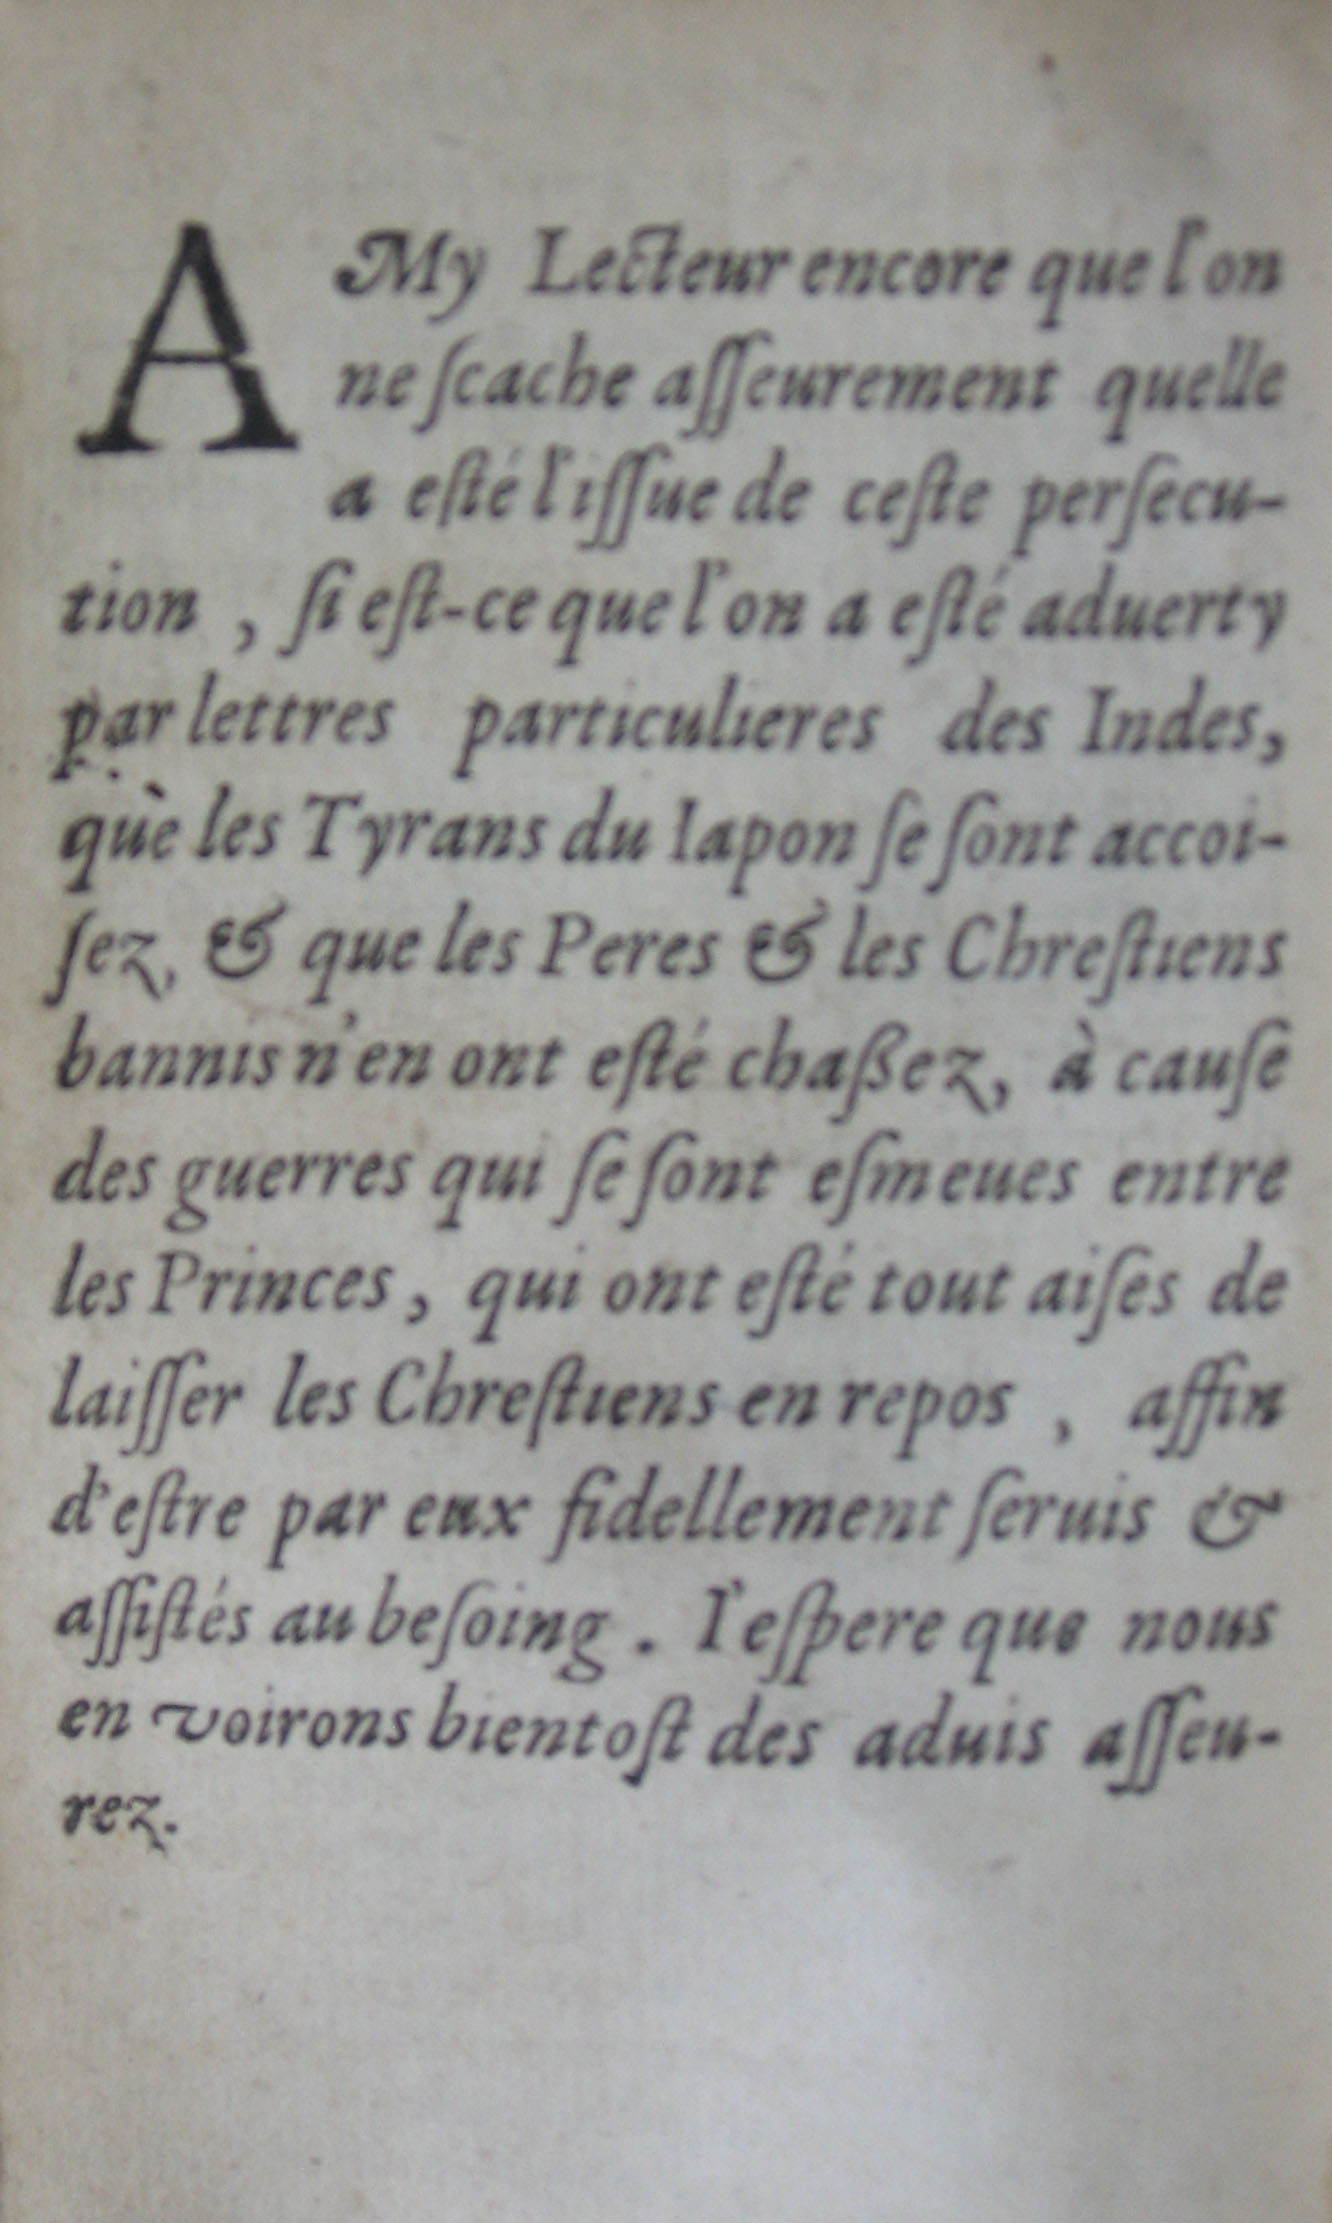 AMy Lecteur encore que l'on
ne ſcache aſſeurement quelle
a eſté l'iſſue de ceſte perſecu-
tion , ſi eſt-ce que l'on a eſté aduerty
par lettres particulieres des Indes,
què les Tyrans du Iapon ſe ſont accoi-
ſez, & que les Peres & les Chreſtiens
bannis n'en ont eſté chaßez, à cauſe
des guerres qui ſe ſont eſmeues entre
les Princes, qui ont eſté tout aiſes de
laiſſer les Chreſtiens en repos , affin
d'eſtre par eux fidellement ſeruis &
aſſiſtés au beſoing . I'eſpere que nous
en voirons bientoſt des aduis aſſeu-
rez.